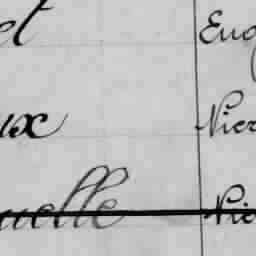 et Eug
ux Pier
uelle Pie